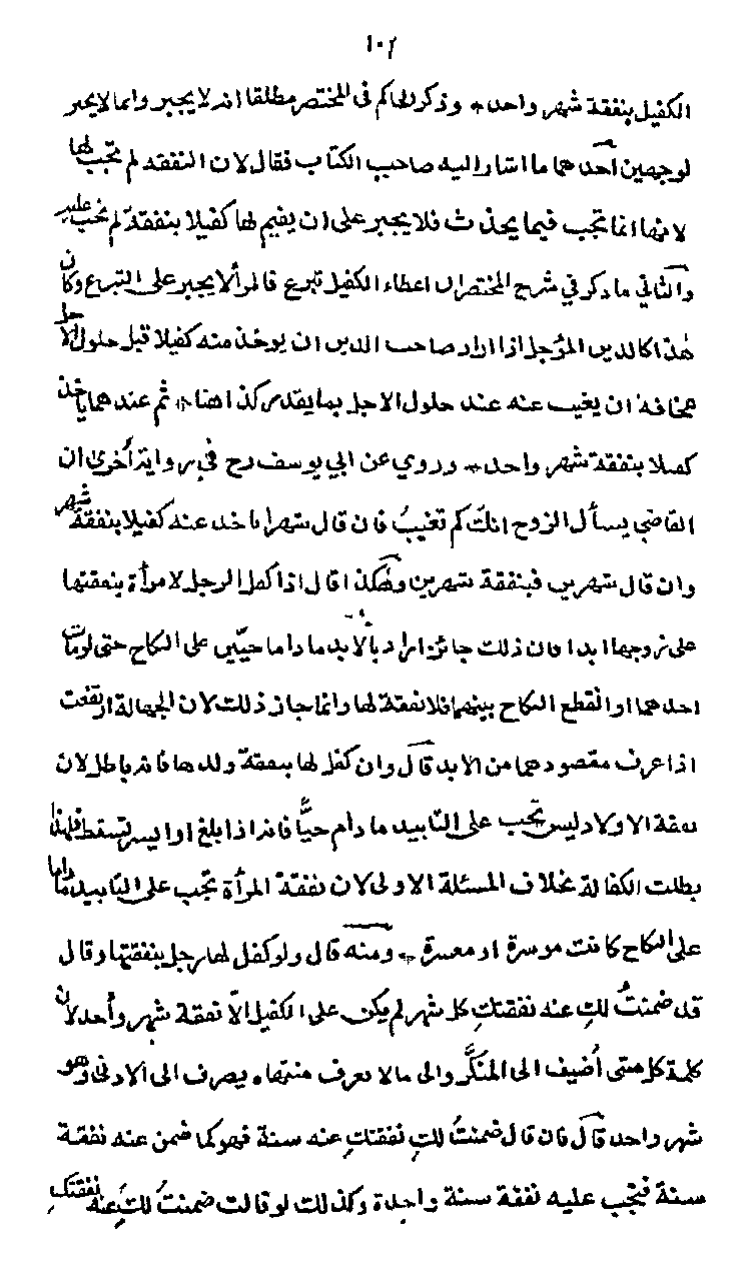 ١٠٢
الكفيل بنفقة شهر واحد * وذكر الحاكم فى المختصر مطلقا انه لا يجبر وانما لا يجبر
لوجهين احدهما ما اشار اليه صاحب الكتاب فقال لان النفقه لم تجب لها
لانها انما تجب فيما يحدث فلا يجبر على ان يقيم لها كفيلا بنفقة لم تجب عليه
والثاني ما ذكر في شرح المختصر ان اعطاء الكفيل تبرع فالمرأ لا يجبر على التبرع وكان
هذا كالدين المؤجل اذا اراد صاحب الدين ان يوخذ منه كفيلا قبل حلول الاجل
مخافة ان يغيب عنه عند حلول الاجل بما يقدم كذا هنا * ثم عندهما ياخذ
كفيلا بنفقة شهر واحد * وروي عن ابي يوسف رح في رواية أخرى ان
القاضي يسأل الزوج انك كم تغيبُ فان قال شهرا ياخذ عنه كفيلا بنفقة شهر
وان قال شهرين فبنفقة شهرين وهكذا قال اذا كفل الرجل لامرأة بنفقتها
على زوجها ابدا فان ذلك جائز اراد بالابد ما داما حيّين على النكاح حتى لو مات
احدهما او انقطع النكاح بينهما فلا نفقة لها وانما جاز ذلك لان الجهالة ارتفعت
اذا عرف مقصودهما من الابد قال وان كفل لها بنفقة ولدها فانه باطل لان
نفقة الاولاد ليس تجب على التابيد ما دام حيًّا فانه اذا بلغ او ايسر تسقط فلهذا
بطلت الكفالة بخلاف المسئلة الاولى لان نفقة المرأة تجب على التابيد ما داما
على النكاح كانت موسرة او معسرة * ومنه قال ولو كفل لها رجل بنفقتها وقال
قد ضمنتُ لكِ عنه نفقتكِ كل شهر لم يكن على الكفيل الاّ نفقة شهر واحد لان
كلمة كل متى أُضيف الى المنكَّر والى ما لا يعرف منتهاه يصرف الى الادنى وهو
شهر واحد قال فان قال ضمنتُ لكِ نفقتكِ عنه سنة فهو كما ضمن عنه نفقة
سنة فتجب عليه نفقة سنة واحدة وكذلك لو قالت ضمنتُ لكِ عنه نفقتكِ